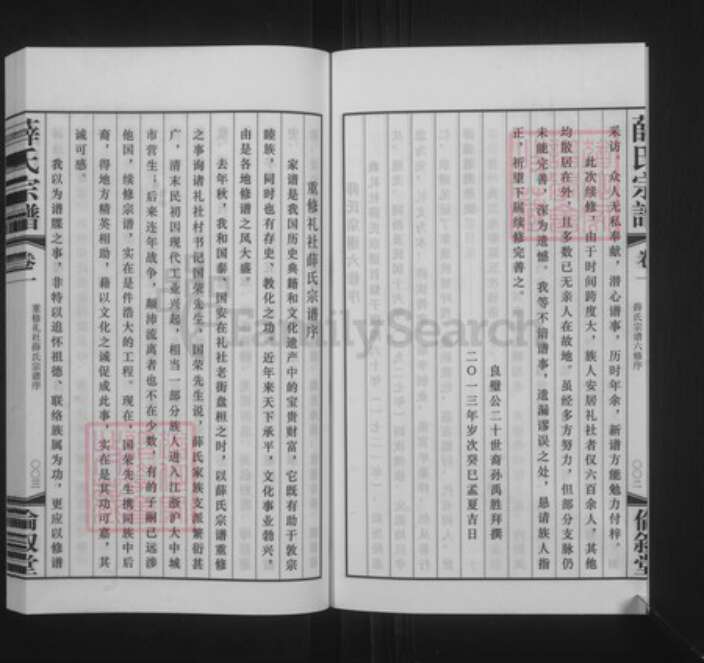 薛氏宗譜
卷一
薛氏宗谱六修序
〇〇二
倫叙堂
采访，众人无私奉献，潜心谱事，历时年余，新谱方能勉力付梓。
此次续修，由于时间跨度大，族人安居礼社者仅六百余人，其他
均散居在外，且多数已无亲人在故地。虽经多方努力，但部分支脉仍
未能完善，深为遗憾。我等不谙谱事，遗漏谬误之处，恳请族人指
正，祈望下届续修完善之。
良璧公二十世裔孙禹胜拜撰
二〇一三年岁次癸巳孟夏吉日
重修礼社薛氏宗谱序
家谱是我国历史典籍和文化遗产中的宝贵财富，它既有助于敦宗
睦族，同时也有存史、教化之功。近年来天下承平，文化事业勃兴，
由是各地修谱之风大盛。
去年秋，我和国泰、国安在礼社老街盘桓之时，以薛氏宗谱重修
之事询诸礼社村书记国荣先生。国荣先生说，薛氏家族支派繁衍甚
广，清末民初因现代工业兴起，相当一部分族人进入江浙沪大中城
市营生；后来连年战争，颠沛流离者也不在少数，有的子嗣已远涉
他国，续修宗谱，实在是件浩大的工程。现在，国荣先生携同族中后
裔，得地方精英相助，籍以文化之诚促成此事，实在是其功可嘉，其
诚可感。
我以为谱牒之事，非特以追怀祖德、联络族属为功，更应以修谱
薛氏宗譜
卷一
重修礼社薛氏宗谱序
〇〇三
倫叙堂
FamilySearch